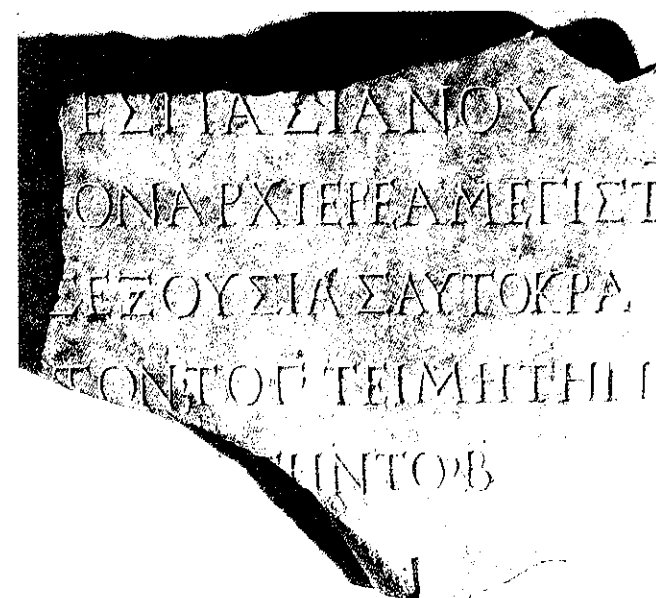 ΕΣΠΑΣΙΑΝΟΥ
ΟΝΑΡΧΙΕΡΕΑΜΕΓΙΣΤ
ΣΕΞΟΥΣΙΑΣΑΥΤΟΚΡΑ
ΤΟΝΤΟΓ ΤΕΙΜΗΤΗΝ
ΗΝΤΟΒ